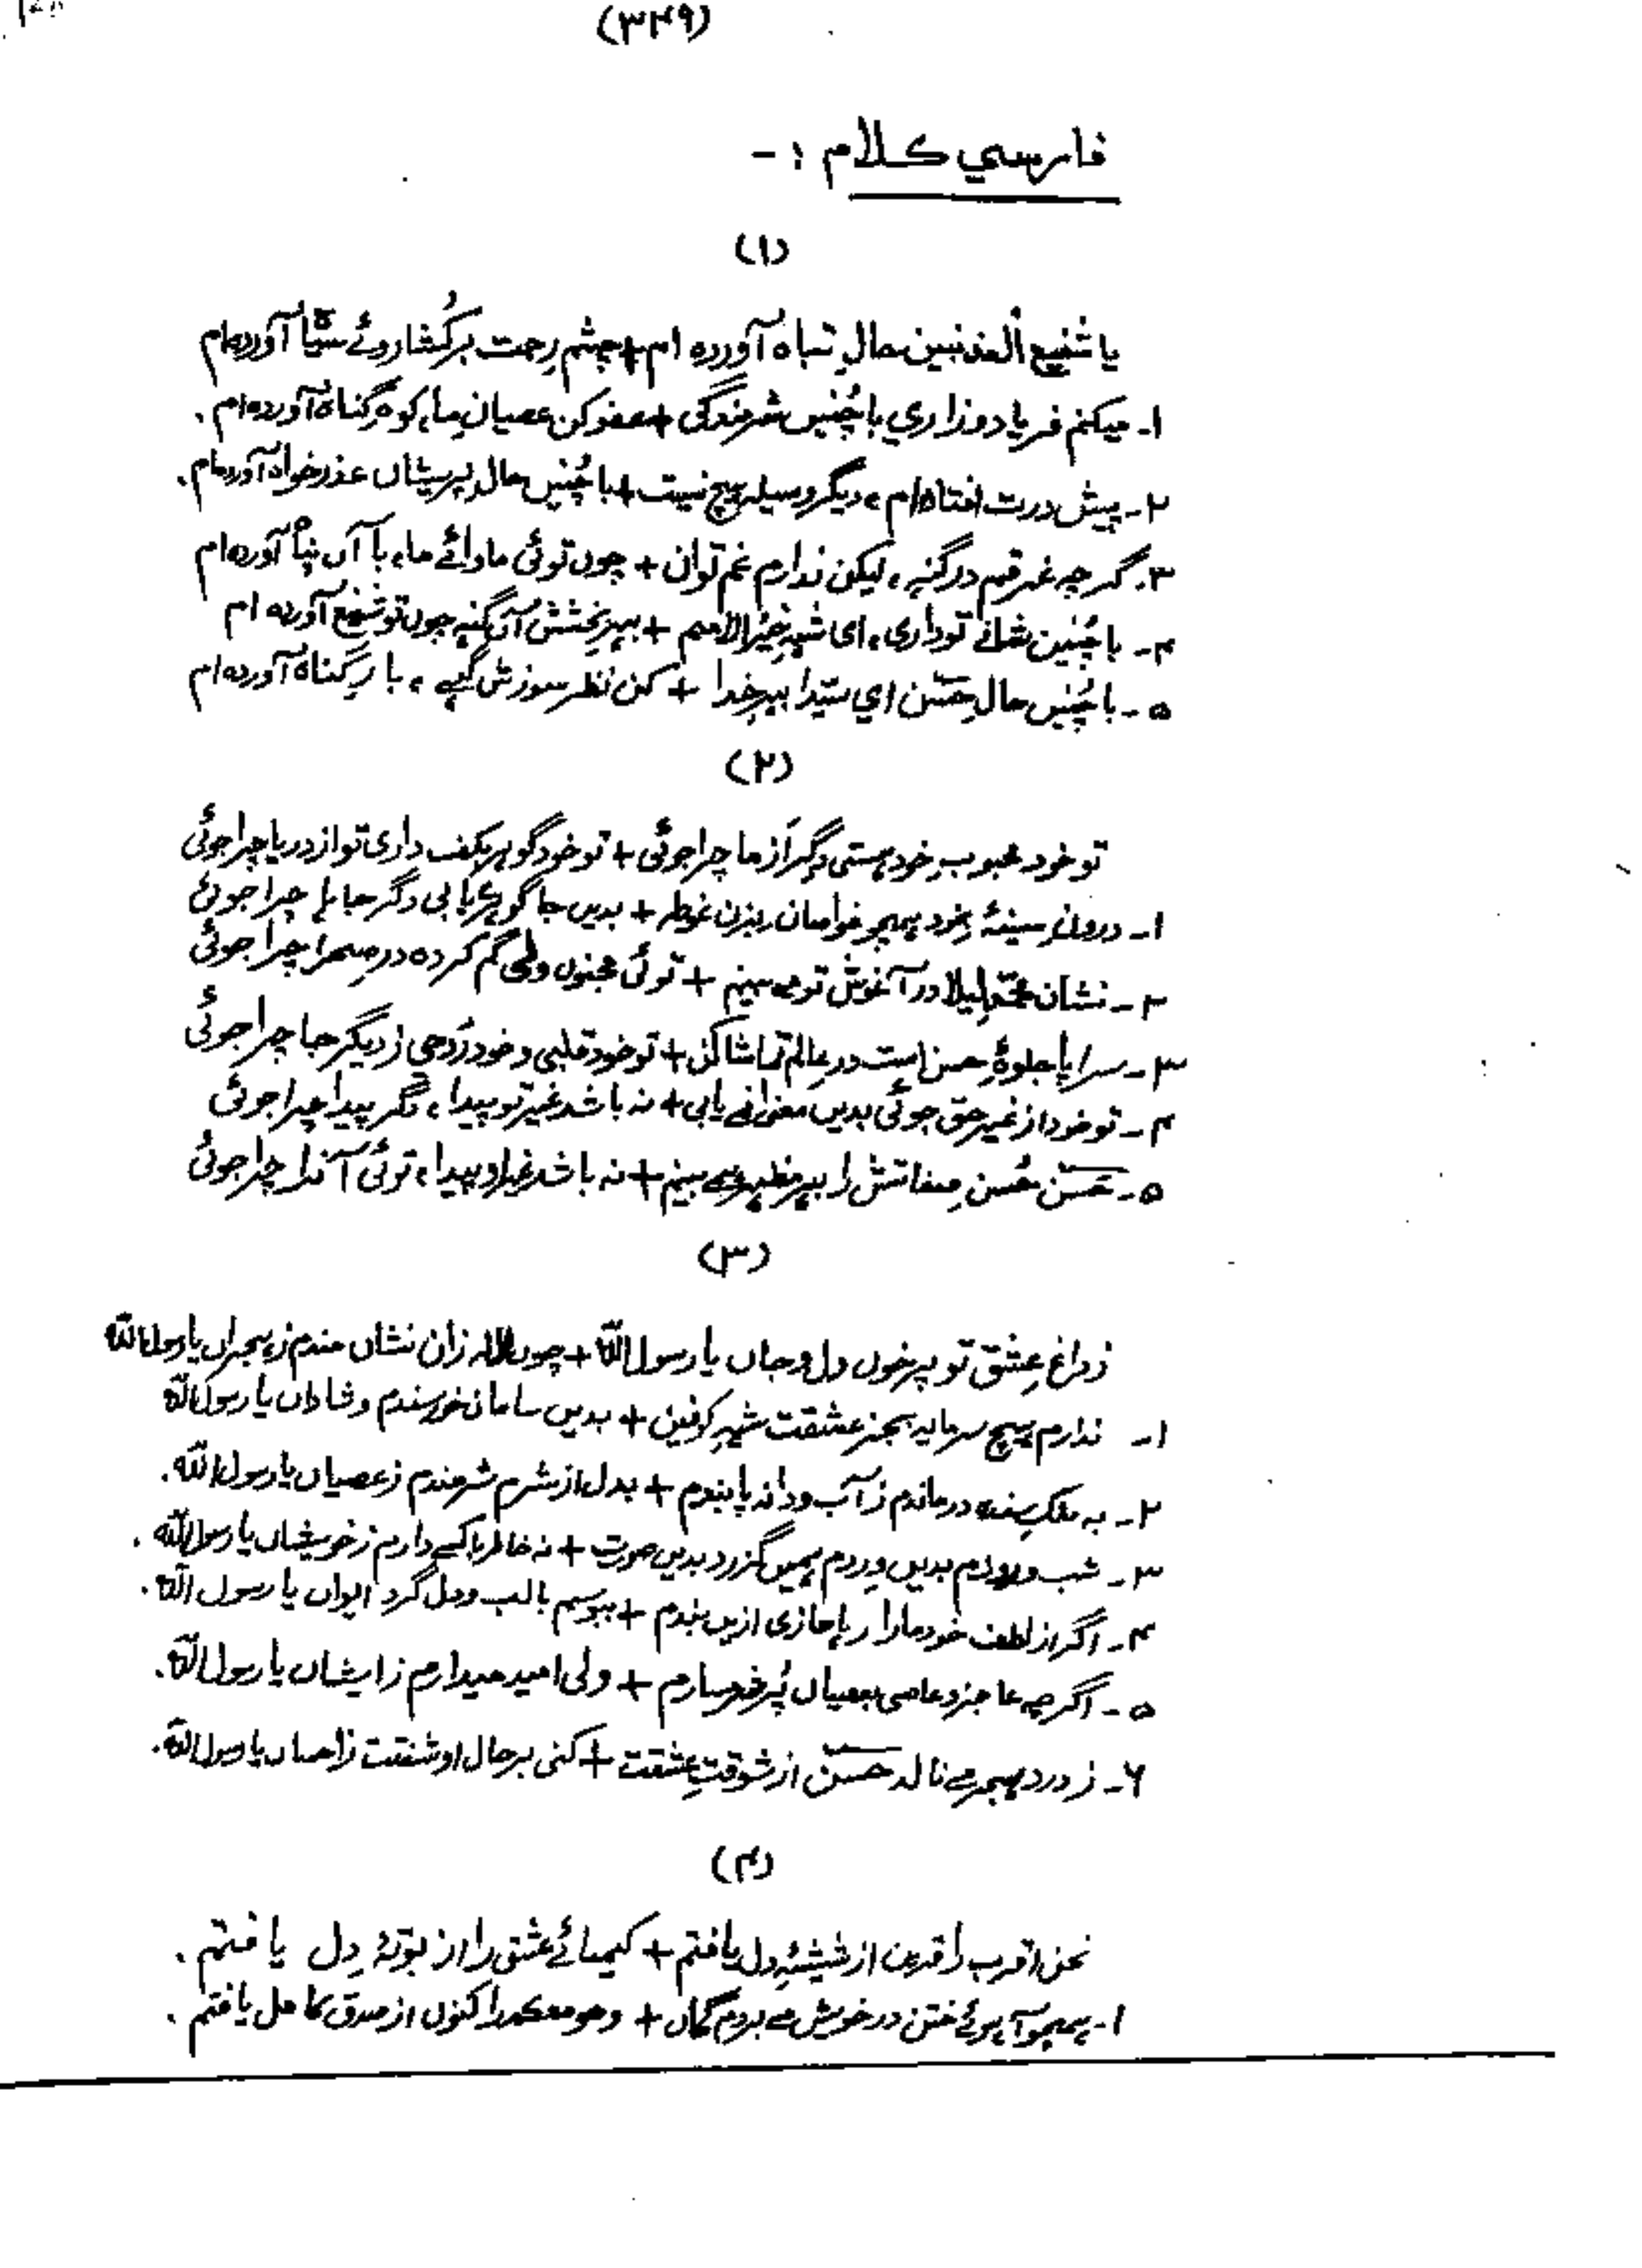 (۳۴۹)
فارسي ڪلام :-
(۱)
يا شفیع المذنبین حالِ تباہ آوردہ ام + چشم رحمت برکُشا روئے سیاہ آوردہ ام
۱- میکنم فریاد و زاري با چُنیں شرمندگی + عفو کن عصیانِ ما، کوہِ گناہ آوردہ ام.
۲- پیش درت افتادہ ام، دیگر وسیلہ ہیچ نیست + با چُنیں حالِ پریشاں عذر خواہ آوردہ ام.
۳. گرچہ غرقم در گنہ، لیکن ندارم غم توان + چوں توئی ماوائے ما، با آں پناہ آوردہ ام
۴- با چُنین شانے تو داری، ای شہِ خیرُ الامم + بہرِ بخشش آں گنہ چوں تو شفیع آوردہ ام
۵- با چُنیں حالِ حسن اي سیّدا بہرِ خدا + کن نظر سوزش گہے، بارِ گناہ آوردہ ام
(۲)
تو خود محبوب خود ہستی دِگر از ما چرا جوئی + تو خود گوہر بکف داری تو از دریا چرا جوئی
۱- درونِ سینۂ خود ہمچو غواصان بزن غوطہ + بدیں جا گوہر یابی دگر جا ہا چرا جوئی
۲- نشان محملِ لیلا در آغوش تو مے بینم + توئی مجنوں ولی گم کردہ در صحرا چرا جوئی
۳- سراپا جلوۂِ حسن است در عالم تماشا کن + تو خود قلبی و خود رَوحی ز دیگر جا چرا جوئی
۴- تو خود از غیر حق جوئی بدیں معنیٰ نے یابی + نہ باشد غیر تو پیدا، دگر پیدا چرا جوئی
۵- حسن حُسنِ صفاتش را بہر مظہر ہمے بینم + نہ باشد غیرِ او پیدا، توئی آنرا چرا جوئی
(۳)
ز داغِ عِشق تو پر خوں دل و جاں یا رسول اللہ + چوں لالہ زان نشاں مندم ز ہجراں یا رسول اللہ
۱- ندارم ہیچ سرمایہ بجز عشقت شہِ کونین + بدیں سامان خورسندم و شاداں یا رسول اللہ
۲- بہ ملکِ ہند درماندم ز آب و دانہ پابندم + بدل از شرم شرمندم ز عصیاں یا رسول اللہ.
۳- شب و روزم بدیں وِردم ہمیں گزرد بدیں صورت + نہ خاطر با کسے دارم ز خویشاں یا رسول اللہ.
۴- اگر از لطف خود مارا رہا سازی ازیں بندم + ببوسم با لب و دل گرد ایواں یا رسول اللہ.
۵- اگرچہ عاجز و عاصی بعصیاں پُر شرمسارم + ولی امید میدارم ز ایشاں یا رسول اللہ.
۶- ز دردِ ہجر مے نالد حسن از شوقتِ عشقت + کنی بر حال او شفقت ز احساں یا رسول اللہ.
(۴)
نحن اقرب را قرین از شیشۂِ دل یافتم + کیمیائے عشق را از بوتۂ دِل یافتم.
۱- ہمچو آہوئے ختن در خویش مے بردم گماں + وھو معکم را کنوں از صدق کامل یافتم.